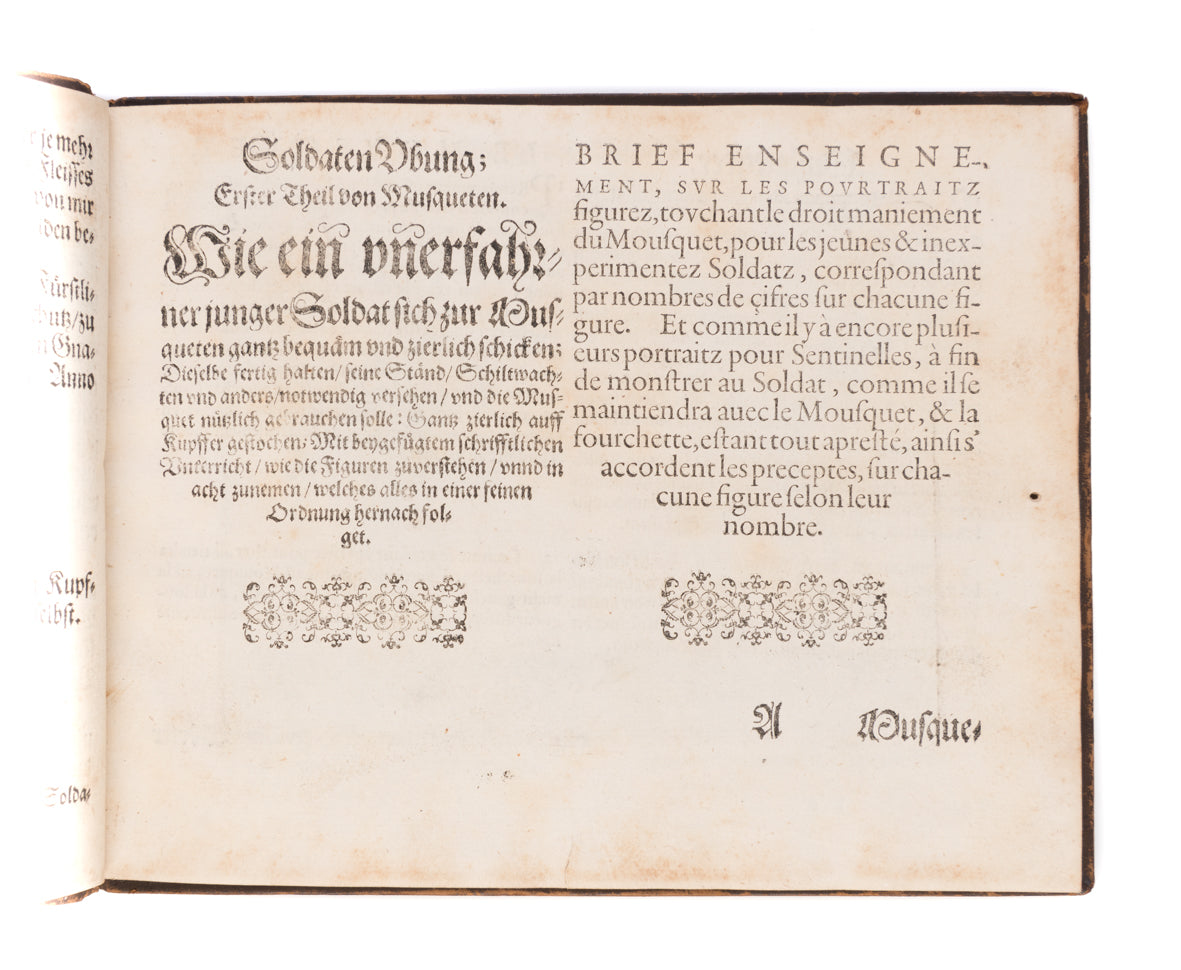 je mehr
Fleisses
von mir
den be-
Fürstli-
Gna-
Anno
Kupf-
selbst.
Solda-
Soldaten Vbung;
Erster Theil von Musqueten.
Wie ein̄ vn̄erfahr-
ner junger Soldat sich zur Mus-
queten gantz bequäm vnd zierlich schicken;
Dieselbe fertig halten/ seine Ständ/ Schiltwach-
ten vnd anders/notwendig versehen/ vnd die Mus-
quet nützlich gebrauchen solle: Gantz zierlich auff
Kupffer gestochen: Mit beygefügtem schrifftlichen
Vnterricht/ wie die Figuren zuverstehen/ vnnd in
acht zunemen/ welches alles in einer feinen
Ordnung hernach fol-
get.
BRIEF ENSEIGNE-
MENT, SVR LES POVRTRAITZ
figurez, tovchant le droit maniement
du Mousquet, pour les jeûnes & inex-
perimentez Soldatz, correspondant
par nombres de çifres sur chacune fi-
gure. Et comme il y à encore plusi-
eurs portraitz pour Sentinelles, à fin
de monstrer au Soldat, comme il se
maintiendra auec le Mousquet, & la
fourchette, estant tout apresté, ainsi s'
accordent les preceptes, sur cha-
cune figure selon leur
nombre.
A Musque-